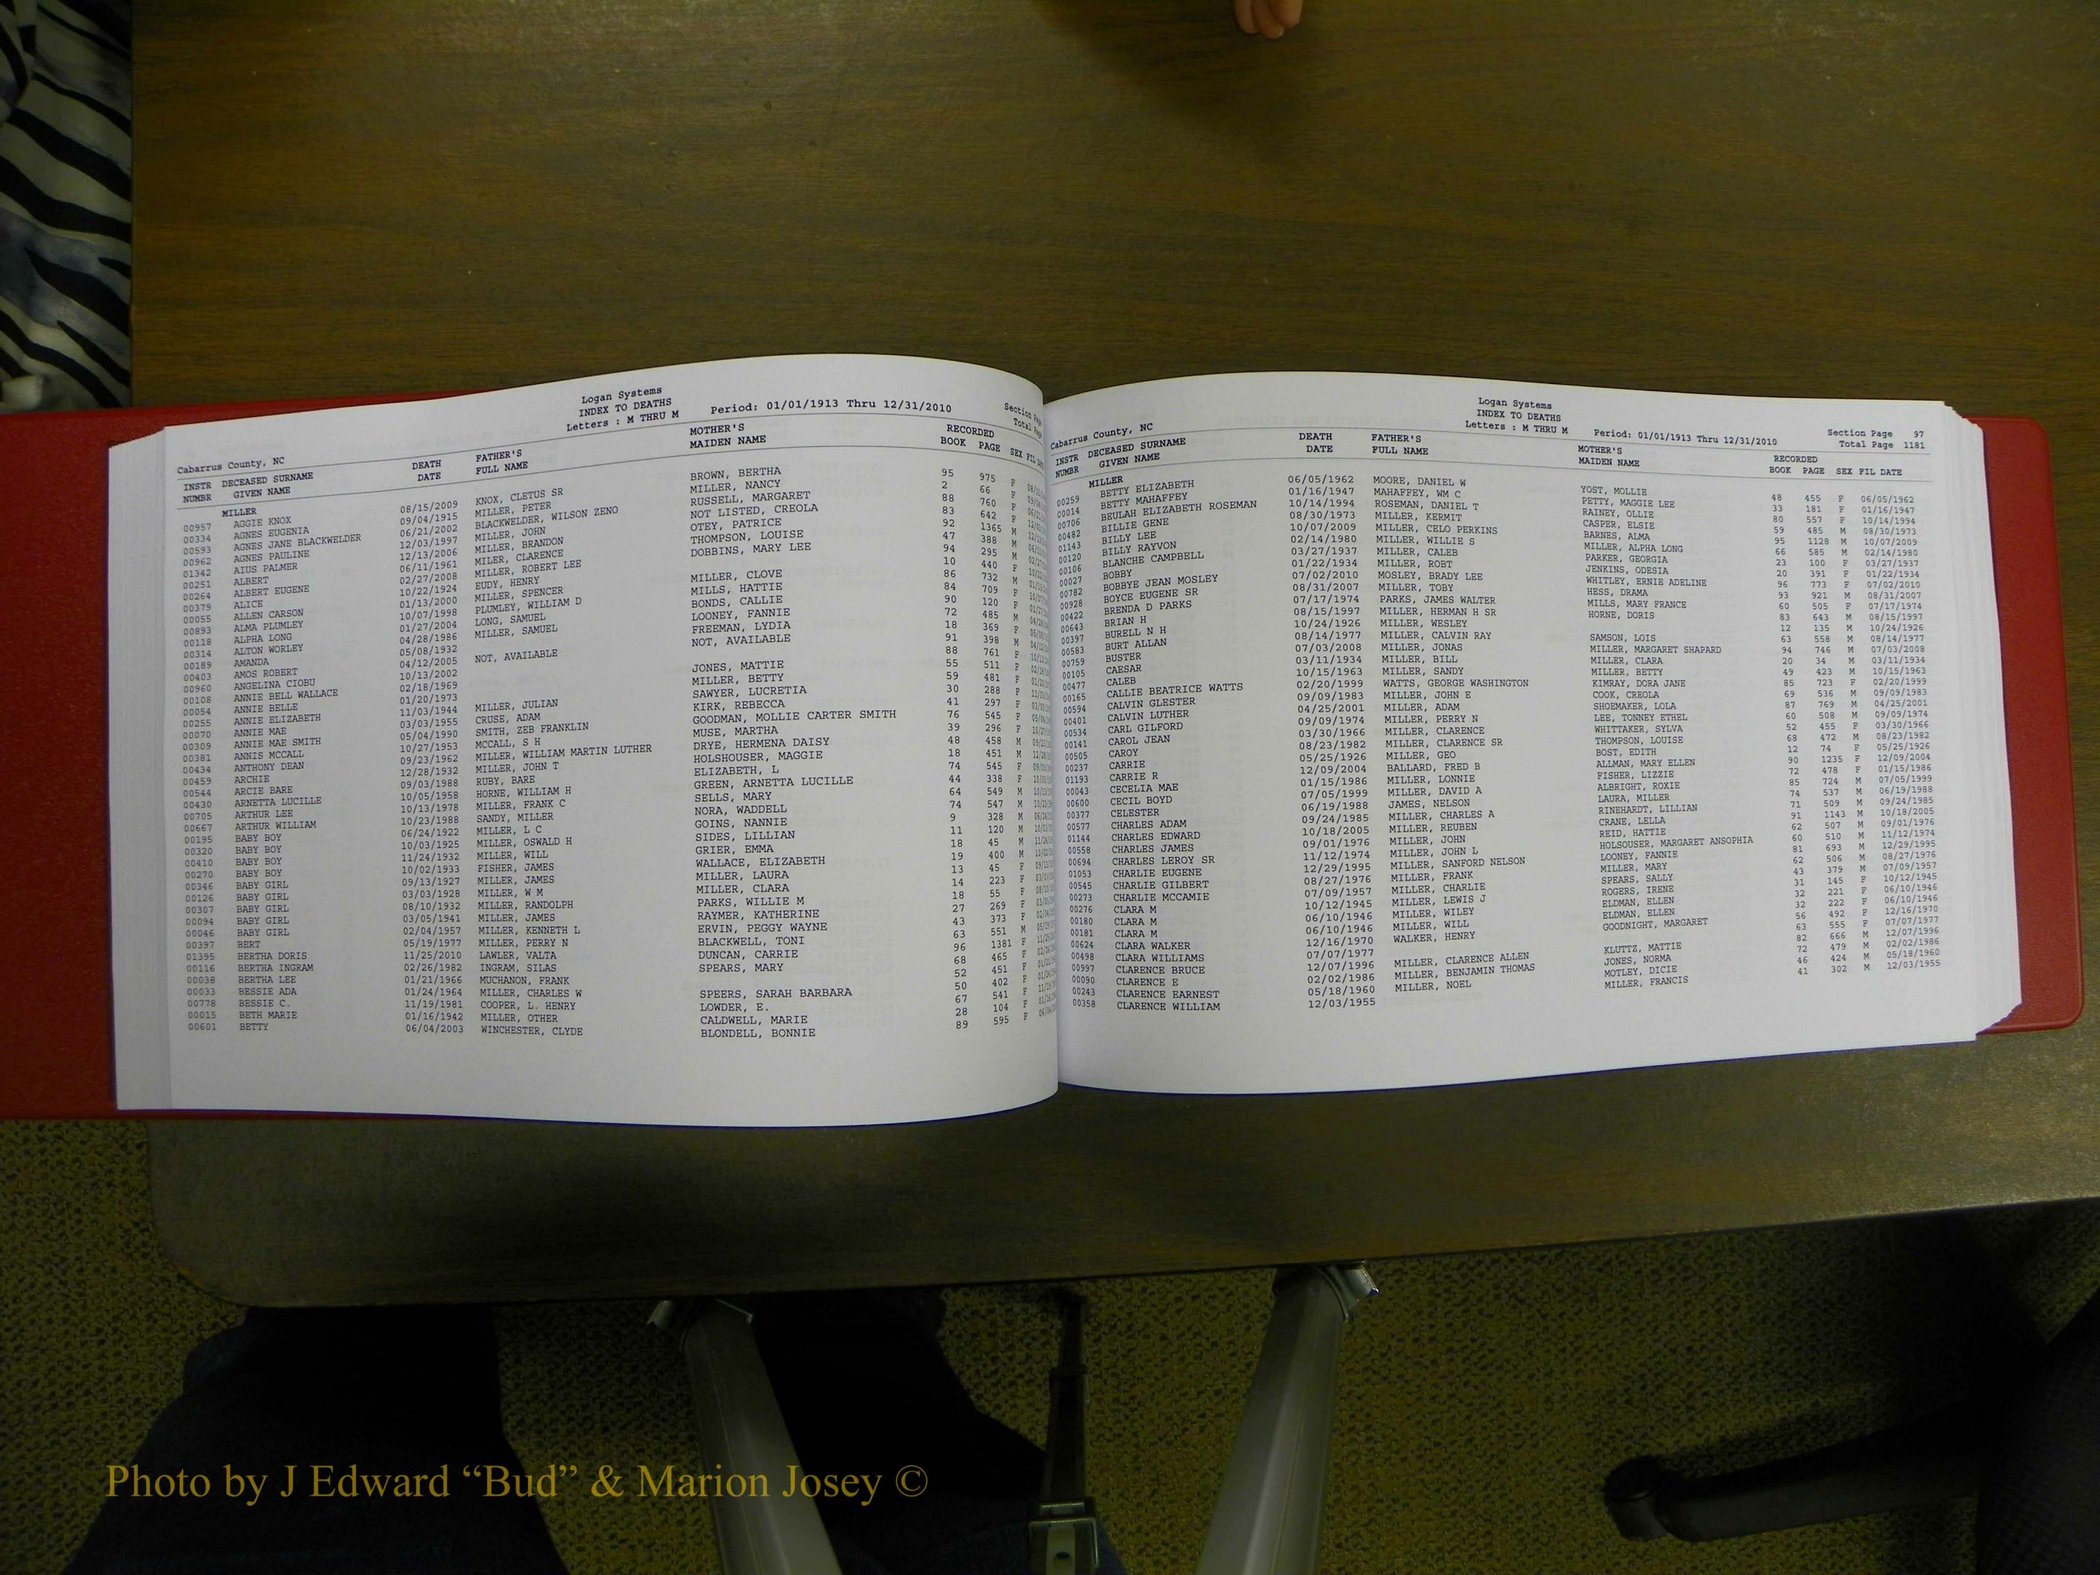 Logan Systems
INDEX TO DEATHS
Letters : M THRU M
Cabarrus County, NC Period: 01/01/1913 Thru 12/31/2010 Section Total
INSTR DECEASED SURNAME DEATH FATHER'S MOTHER'S RECORDED
NUMBR GIVEN NAME DATE FULL NAME MAIDEN NAME BOOK PAGE SEX FIL
MILLER
00957 AGGIE KNOX 08/15/2009 KNOX, CLETUS SR BROWN, BERTHA 95 975 F
00334 AGNES EUGENIA 09/04/1915 MILLER, PETER MILLER, NANCY 2 66 F
00593 AGNES JANE BLACKWELDER 06/21/2002 BLACKWELDER, WILSON ZENO RUSSELL, MARGARET 88 760 F
00962 AGNES PAULINE 12/03/1997 MILLER, JOHN NOT LISTED, CREOLA 83 642 F
01342 AIUS PALMER 12/13/2006 MILLER, BRANDON OTEY, PATRICE 92 1365 M
00251 ALBERT 06/11/1961 MILER, CLARENCE THOMPSON, LOUISE 47 388 M
00264 ALBERT EUGENE 02/27/2008 MILLER, ROBERT LEE DOBBINS, MARY LEE 94 295 M
00379 ALICE 10/22/1924 EUDY, HENRY 10 440 F
00055 ALLEN CARSON 01/13/2000 MILLER, SPENCER MILLER, CLOVE 86 732 M
00893 ALMA PLUMLEY 10/07/1998 PLUMLEY, WILLIAM D MILLS, HATTIE 84 709 F
00118 ALPHA LONG 01/27/2004 LONG, SAMUEL BONDS, CALLIE 90 120 F
00314 ALTON WORLEY 04/28/1986 MILLER, SAMUEL LOONEY, FANNIE 72 485 M
00189 AMANDA 05/08/1932 FREEMAN, LYDIA 18 369 F
00403 AMOS ROBERT 04/12/2005 NOT, AVAILABLE NOT, AVAILABLE 91 398 M
00960 ANGELINA CIOBU 10/13/2002 88 761 F
00108 ANNIE BELL WALLACE 02/18/1969 JONES, MATTIE 55 511 F
00054 ANNIE BELLE 01/20/1973 MILLER, BETTY 59 481 F
00255 ANNIE ELIZABETH 11/03/1944 MILLER, JULIAN SAWYER, LUCRETIA 30 288 F
00070 ANNIE MAE 03/03/1955 CRUSE, ADAM KIRK, REBECCA 41 297 F
00309 ANNIE MAE SMITH 05/04/1990 SMITH, ZEB FRANKLIN GOODMAN, MOLLIE CARTER SMITH 76 545 F
00381 ANNIS MCCALL 10/27/1953 MCCALL, S H MUSE, MARTHA 39 296 F
00434 ANTHONY DEAN 09/23/1962 MILLER, WILLIAM MARTIN LUTHER DRYE, HERMENA DAISY 48 458 M
00459 ARCHIE 12/28/1932 MILLER, JOHN T HOLSHOUSER, MAGGIE 18 451 M
00544 ARCIE BARE 09/03/1988 RUBY, BARE ELIZABETH, L 74 545 F
00430 ARNETTA LUCILLE 10/05/1958 HORNE, WILLIAM H GREEN, ARNETTA LUCILLE 44 338 F
00705 ARTHUR LEE 10/13/1978 MILLER, FRANK C SELLS, MARY 64 549 M
00667 ARTHUR WILLIAM 10/23/1988 SANDY, MILLER NORA, WADDELL 74 547 M
00195 BABY BOY 06/24/1922 MILLER, L C GOINS, NANNIE 9 328 M
00320 BABY BOY 10/03/1925 MILLER, OSWALD H SIDES, LILLIAN 11 120 M
00410 BABY BOY 11/24/1932 MILLER, WILL GRIER, EMMA 18 45 M
00270 BABY BOY 10/02/1933 FISHER, JAMES WALLACE, ELIZABETH 19 400 M
00346 BABY GIRL 09/13/1927 MILLER, JAMES MILLER, LAURA 13 45 F
00126 BABY GIRL 03/03/1928 MILLER, W M MILLER, CLARA 14 223 F
00307 BABY GIRL 08/10/1932 MILLER, RANDOLPH PARKS, WILLIE M 18 55 F
00094 BABY GIRL 03/05/1941 MILLER, JAMES RAYMER, KATHERINE 27 269 F
00046 BABY GIRL 02/04/1957 MILLER, KENNETH L ERVIN, PEGGY WAYNE 43 373 F
00397 BERT 05/19/1977 MILLER, PERRY N BLACKWELL, TONI 63 551 M
01395 BERTHA DORIS 11/25/2010 LAWLER, VALTA DUNCAN, CARRIE 96 1381 F
00116 BERTHA INGRAM 02/26/1982 INGRAM, SILAS SPEARS, MARY 68 465 F
00038 BERTHA LEE 01/21/1966 MUCHANON, FRANK 52 451 F
00033 BESSIE ADA 01/24/1964 MILLER, CHARLES W SPEERS, SARAH BARBARA 50 402 F
00778 BESSIE C. 11/19/1981 COOPER, L. HENRY LOWDER, E. 67 541 F
00015 BETH MARIE 01/16/1942 MILLER, OTHER CALDWELL, MARIE 28 104 F
00601 BETTY 06/04/2003 WINCHESTER, CLYDE BLONDELL, BONNIE 89 595 F
Logan Systems
INDEX TO DEATHS
Letters : M THRU M
Cabarrus County, NC Period: 01/01/1913 Thru 12/31/2010 Section Page 97
Total Page 1181
INSTR DECEASED SURNAME DEATH FATHER'S MOTHER'S RECORDED
NUMBR GIVEN NAME DATE FULL NAME MAIDEN NAME BOOK PAGE SEX FIL DATE
MILLER
00259 BETTY ELIZABETH 06/05/1962 MOORE, DANIEL W YOST, MOLLIE 48 455 F 06/05/1962
00014 BETTY MAHAFFEY 01/16/1947 MAHAFFEY, WM C PETTY, MAGGIE LEE 33 181 F 01/16/1947
00706 BEULAH ELIZABETH ROSEMAN 10/14/1994 ROSEMAN, DANIEL T RAINEY, OLLIE 80 557 F 10/14/1994
00482 BILLIE GENE 08/30/1973 MILLER, KERMIT CASPER, ELSIE 59 485 M 08/30/1973
01143 BILLY LEE 10/07/2009 MILLER, CELO PERKINS BARNES, ALMA 95 1128 M 10/07/2009
00120 BILLY RAYVON 02/14/1980 MILLER, WILLIE S MILLER, ALPHA LONG 66 585 M 02/14/1980
00106 BLANCHE CAMPBELL 03/27/1937 MILLER, CALEB PARKER, GEORGIA 23 100 F 03/27/1937
00027 BOBBY 01/22/1934 MILLER, ROBT JENKINS, ODESIA 20 391 F 01/22/1934
00782 BOBBYE JEAN MOSLEY 07/02/2010 MOSLEY, BRADY LEE WHITLEY, ERNIE ADELINE 96 773 F 07/02/2010
00928 BOYCE EUGENE SR 08/31/2007 MILLER, TOBY HESS, DRAMA 93 921 M 08/31/2007
00422 BRENDA D PARKS 07/17/1974 PARKS, JAMES WALTER MILLS, MARY FRANCE 60 505 F 07/17/1974
00643 BRIAN H 08/15/1997 MILLER, HERMAN H SR HORNE, DORIS 83 643 M 08/15/1997
00397 BURELL N H 10/24/1926 MILLER, WESLEY 12 135 M 10/24/1926
00583 BURT ALLAN 08/14/1977 MILLER, CALVIN RAY SAMSON, LOIS 63 558 M 08/14/1977
00759 BUSTER 07/03/2008 MILLER, JONAS MILLER, MARGARET SHAPARD 94 746 M 07/03/2008
00105 CAESAR 03/11/1934 MILLER, BILL MILLER, CLARA 20 34 M 03/11/1934
00477 CALEB 10/15/1963 MILLER, SANDY MILLER, BETTY 49 423 M 10/15/1963
00165 CALLIE BEATRICE WATTS 02/20/1999 WATTS, GEORGE WASHINGTON KIMRAY, DORA JANE 85 723 F 02/20/1999
00594 CALVIN GLESTER 09/09/1983 MILLER, JOHN E COOK, CREOLA 69 536 M 09/09/1983
00401 CALVIN LUTHER 04/25/2001 MILLER, ADAM SHOEMAKER, LOLA 87 769 M 04/25/2001
00534 CARL GILFORD 09/09/1974 MILLER, PERRY N LEE, TONNEY ETHEL 60 508 M 09/09/1974
00141 CAROL JEAN 03/30/1966 MILLER, CLARENCE WHITTAKER, SYLVA 52 455 F 03/30/1966
00505 CAROY 08/23/1982 MILLER, CLARENCE SR THOMPSON, LOUISE 68 472 M 08/23/1982
00237 CARRIE 05/25/1926 MILLER, GEO BOST, EDITH 12 74 F 05/25/1926
01193 CARRIE R 12/09/2004 BALLARD, FRED B ALLMAN, MARY ELLEN 90 1235 F 12/09/2004
00043 CECELIA MAE 01/15/1986 MILLER, LONNIE FISHER, LIZZIE 72 478 F 01/15/1986
00600 CECIL BOYD 07/05/1999 MILLER, DAVID A ALBRIGHT, ROXIE 85 724 M 07/05/1999
00377 CELESTER 06/19/1988 JAMES, NELSON LAURA, MILLER 74 537 M 06/19/1988
00577 CHARLES ADAM 09/24/1985 MILLER, CHARLES A RINEHARDT, LILLIAN 71 509 M 09/24/1985
01144 CHARLES EDWARD 10/18/2005 MILLER, REUBEN CRANE, LELLA 91 1143 M 10/18/2005
00558 CHARLES JAMES 09/01/1976 MILLER, JOHN REID, HATTIE 62 507 M 09/01/1976
00694 CHARLES LEROY SR 11/12/1974 MILLER, JOHN L HOLSOUSER, MARGARET ANSOPHIA 60 510 M 11/12/1974
01053 CHARLIE EUGENE 12/29/1995 MILLER, SANFORD NELSON LOONEY, FANNIE 81 693 M 12/29/1995
00545 CHARLIE GILBERT 08/27/1976 MILLER, FRANK MILLER, MARY 62 506 M 08/27/1976
00273 CHARLIE MCCAMIE 07/09/1957 MILLER, CHARLIE SPEARS, SALLY 43 379 M 07/09/1957
00276 CLARA M 10/12/1945 MILLER, LEWIS J ROGERS, IRENE 31 145 F 10/12/1945
00180 CLARA M 06/10/1946 MILLER, WILEY ELDMAN, ELLEN 32 221 F 06/10/1946
00181 CLARA M 06/10/1946 MILLER, WILL ELDMAN, ELLEN 32 222 F 06/10/1946
00624 CLARA WALKER 12/16/1970 WALKER, HENRY GOODNIGHT, MARGARET 56 492 F 12/16/1970
00498 CLARA WILLIAMS 07/07/1977 63 555 F 07/07/1977
00997 CLARENCE BRUCE 12/07/1996 MILLER, CLARENCE ALLEN KLUTTZ, MATTIE 82 666 M 12/07/1996
00090 CLARENCE E 02/02/1986 MILLER, BENJAMIN THOMAS JONES, NORMA 72 479 M 02/02/1986
00243 CLARENCE EARNEST 05/18/1960 MILLER, NOEL MOTLEY, DICIE 46 424 M 05/18/1960
00358 CLARENCE WILLIAM 12/03/1955 MILLER, FRANCIS 41 302 M 12/03/1955
Photo by J Edward “Bud” & Marion Josey ©